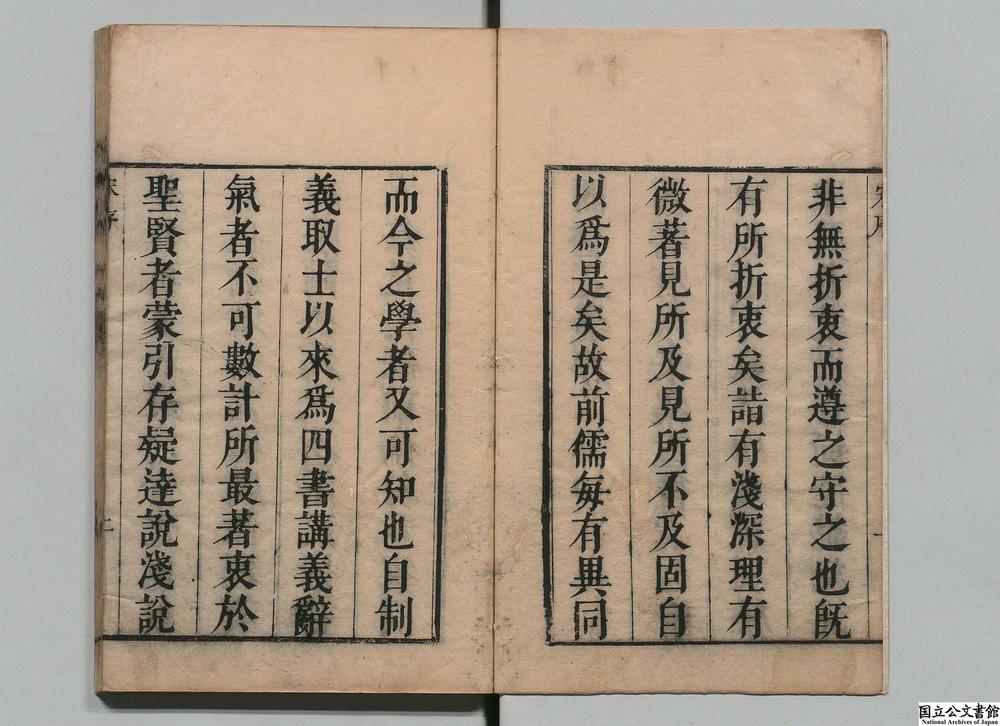 非無折衷而遵之守之也旣
有所折衷矣詣有淺深理有
微著見所及見所不及固自
以爲是矣故前儒每有異同
而今之學者又可知也自制
義取士以來爲四書講義辭
氣者不可數計所最著衷於
聖賢者蒙引存疑達說淺說
二
国立公文書館
National Archives of Japan